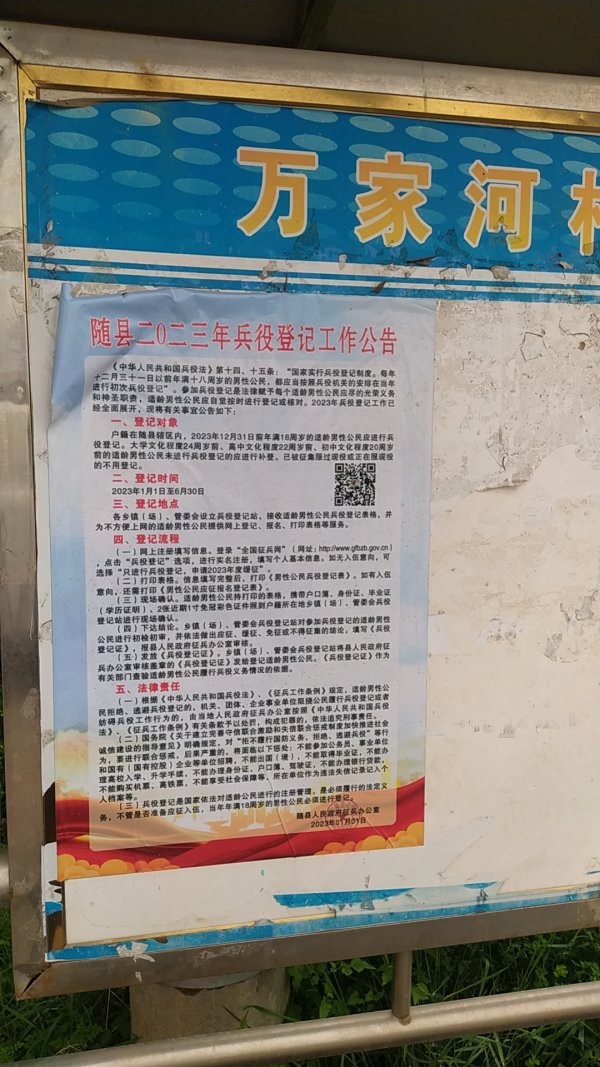 万家河村
随县二0二三年兵役登记工作公告
《中华人民共和国兵役法》第十四、十五条：“国家实行兵役登记制度。每年
十二月三十一日以前年满十八周岁的男性公民，都应当按照兵役机关的安排在当年
进行初次兵役登记”。参加兵役登记是法律赋予每个适龄男性公民应尽的光荣义务
和神圣职责，适龄男性公民应自觉按时进行登记或核对。2023年兵役登记工作已
经全面展开，现将有关事宜公告如下：
一、登记对象
户籍在随县辖区内，2023年12月31日前年满18周岁的适龄男性公民应进行兵
役登记。大学文化程度24周岁前、高中文化程度22周岁前、初中文化程度20周岁
前的适龄男性公民未进行兵役登记的应进行补登。已被征集服过现役或正在服现役
的不用登记。
二、登记时间
2023年1月1日至6月30日
三、登记地点
各乡镇（场）、管委会设立兵役登记站，接收适龄男性公民兵役登记表格，并
为不方便上网的适龄男性公民提供网上登记、报名、打印表格等服务。
四、登记流程
（一）网上注册填写信息。登录“全国征兵网”（网址：http://www.gfbzb.gov.cn）
，点击“兵役登记”选项，进行实名注册，填写个人基本信息。如无入伍意向，可
选择“只进行兵役登记，申请2023年度缓征”。
（二）打印表格。信息填写完整后，打印《男性公民兵役登记表》。如有入伍
意向，还需打印《男性公民应征报名登记表》。
（三）现场确认。适龄男性公民持打印的表格，携带户口簿、身份证、毕业证
（学历证明）、2张近期1寸免冠彩色证件照到户籍所在地乡镇（场）、管委会兵役
登记站进行现场确认。
（四）下达结论。乡镇（场）、管委会兵役登记站对参加兵役登记的适龄男性
公民进行初检初审，并依法做出应征、缓征、免征或不得征集的结论，填写《兵役
登记证》，报县人民政府征兵办公室审核。
（五）发放《兵役登记证》。乡镇（场）、管委会兵役登记站将县人民政府征
兵办公室审核盖章的《兵役登记证》发给登记适龄男性公民。《兵役登记证》作为
有关部门查验适龄男性公民履行兵役义务情况的依据。
五、法律责任
（一）根据《中华人民共和国兵役法》、《征兵工作条例》规定，适龄男性公
民拒绝、逃避兵役登记的，机关、团体、企业事业单位阻挠公民履行兵役登记或者
妨碍兵役工作行为的，由当地人民政府征兵办公室按照《中华人民共和国兵役
法》、《征兵工作条例》有关条款予以处罚，构成犯罪的，依法追究刑事责任。
（二）国务院《关于建立完善守信联合激励和失信联合惩戒制度加快推进社会
诚信建设的指导意见》明确规定，对“拒不履行国防义务，拒绝、逃避兵役”等行
为，要进行联合惩戒，后果严重的，将面临以下惩处：不能参加公务员、事业单位
和国有（国有控股）企业等单位招聘，不能出国（境），不能取得毕业证，不能办
理高校入学、升学手续，不能办理身份证、户口簿、驾驶证，不能办理银行贷款，
不能购买机票、高铁票，不能享受社会保障等，所在单位作为违法失信记录记入个
人档案等。
（三）兵役登记是国家依法对适龄公民进行的注册管理，是必须履行的法定义
务，不管是否准备应征入伍，当年年满18周岁的男性公民必须进行登记。
随县人民政府征兵办公室
2023年01月01日